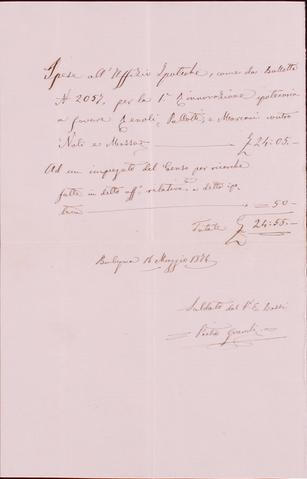 Spese all'Uffizio Ipoteche, come da bolletta
N. 2057, per la 1ª rinnovazione ipotecaria
a favore Zenoli, Pallotti e Marconi contro
Noli e Massa £ 24:05.
Ad un impiegato del Censo per ricerche
fatte in detto aff. relativa a detta ipo
teca 50
Totale £ 24:55
Bologna 16 Maggio 18
Saldato dal